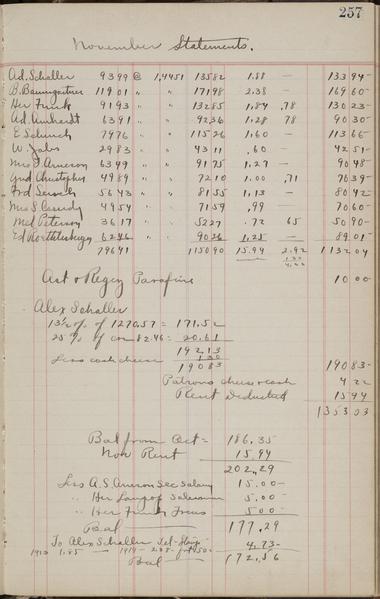 257
November Statements.
Ad. Schaller 9399 @ 1,4451 13582 1.88 — 133 94 -
B. Baumgartner 11901 " " 17198 2.38 — 169 60 -
Her Funk 9193 " " 13285 1,84 ,78 130 23 -
Ad. Amhardt 6391 " " 9236 1.28 78 90 30 -
E Schmich 7976 " " 11526 1,60 — 113 66 -
W. Jabs 2983 " " 4311 ,60 — 42 51 -
Mrs J. Arneson 6349 " " 9175 1,27 — 90 48 -
Christopher 4989 " " 7210 1.00 ,71 70 39 -
5643 " " 8155 1,13 — 80 42 -
Mrs S. Cassidy 4954 " " 7159 ,99 — 70 60 -
Med Peterson 3617 " " 5227 .72 65 50 90 -
Ed 6246 " " 9026 1,25 — 89 01 -
79641 115090 15.94 2.92 1132 04
1 30
4.22
Parafine 10 00 -
Alex Schaller
13½ % of 1270.57 = 171.52
25 % of 82.46 = 20.61
192,13
Less cash cheese 1 30
190 83 190 83 -
Patrons cheese & cash 4 22
Rent Deducted 15 94
1353 03
Bal from Oct = 186.35
Nov Rent 15,94
202,29
Less A.S. Arneson Sec Salary 15.00 -
" Her 5.00 -
" Her Funk Treas 5 00 -
Bal — 177.29
To Alex Schaller 4.73 -
1913 1.85 — 1914 - 2.88
Bal — 172,56